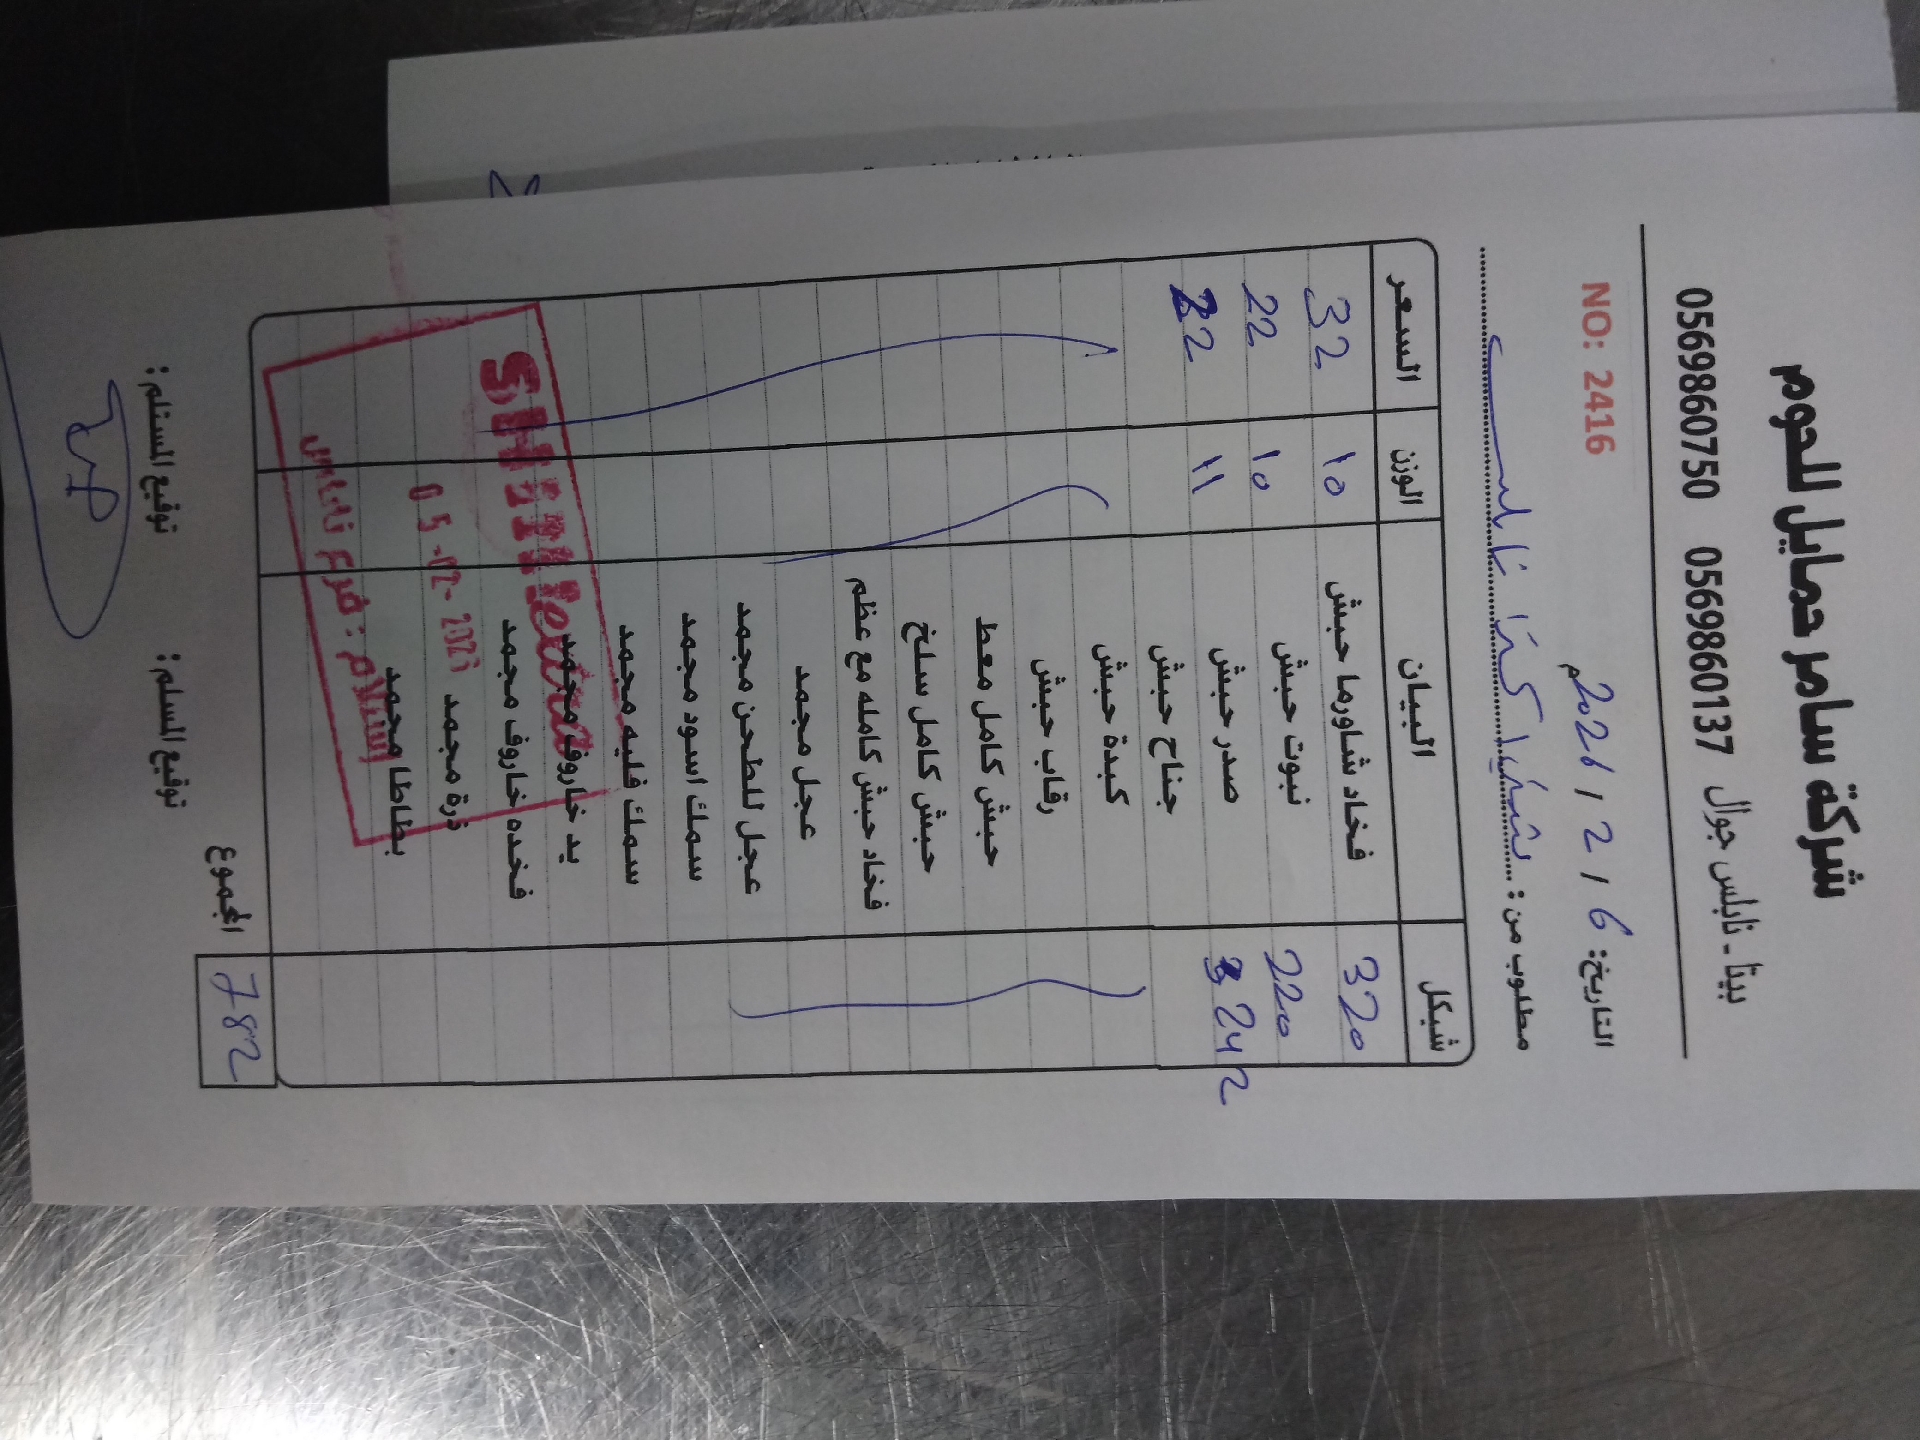 شركة سامر حمايل للحوم
بيتا - نابلس جوال 0569860137 0569860750
التاريخ: 6 / 2 / 2021 م NO: 2416
مطلوب من: شيلا كسترا نابلس
شيكل البيان الوزن السعر
320 فخاد شاورما حبش ١٥ 32
220 نبوت حبش ١٥ 22
242 صدر حبش ١١ 22
جناح حبش
كبدة حبش
رقاب حبش
حبش كامل معط
حبش كامل سلخ
فخاد حبش كامله مع عظم
عجل مجمد
عجل للطحن مجمد
سمك اسود مجمد
سمك فليه مجمد
يد خاروف مجمد
فخده خاروف مجمد
ذرة مجمد
بطاطا مجمد
05-02-202
استلام: فرع نابلس
المجموع 782
توقيع المسلم: توقيع المستلم: